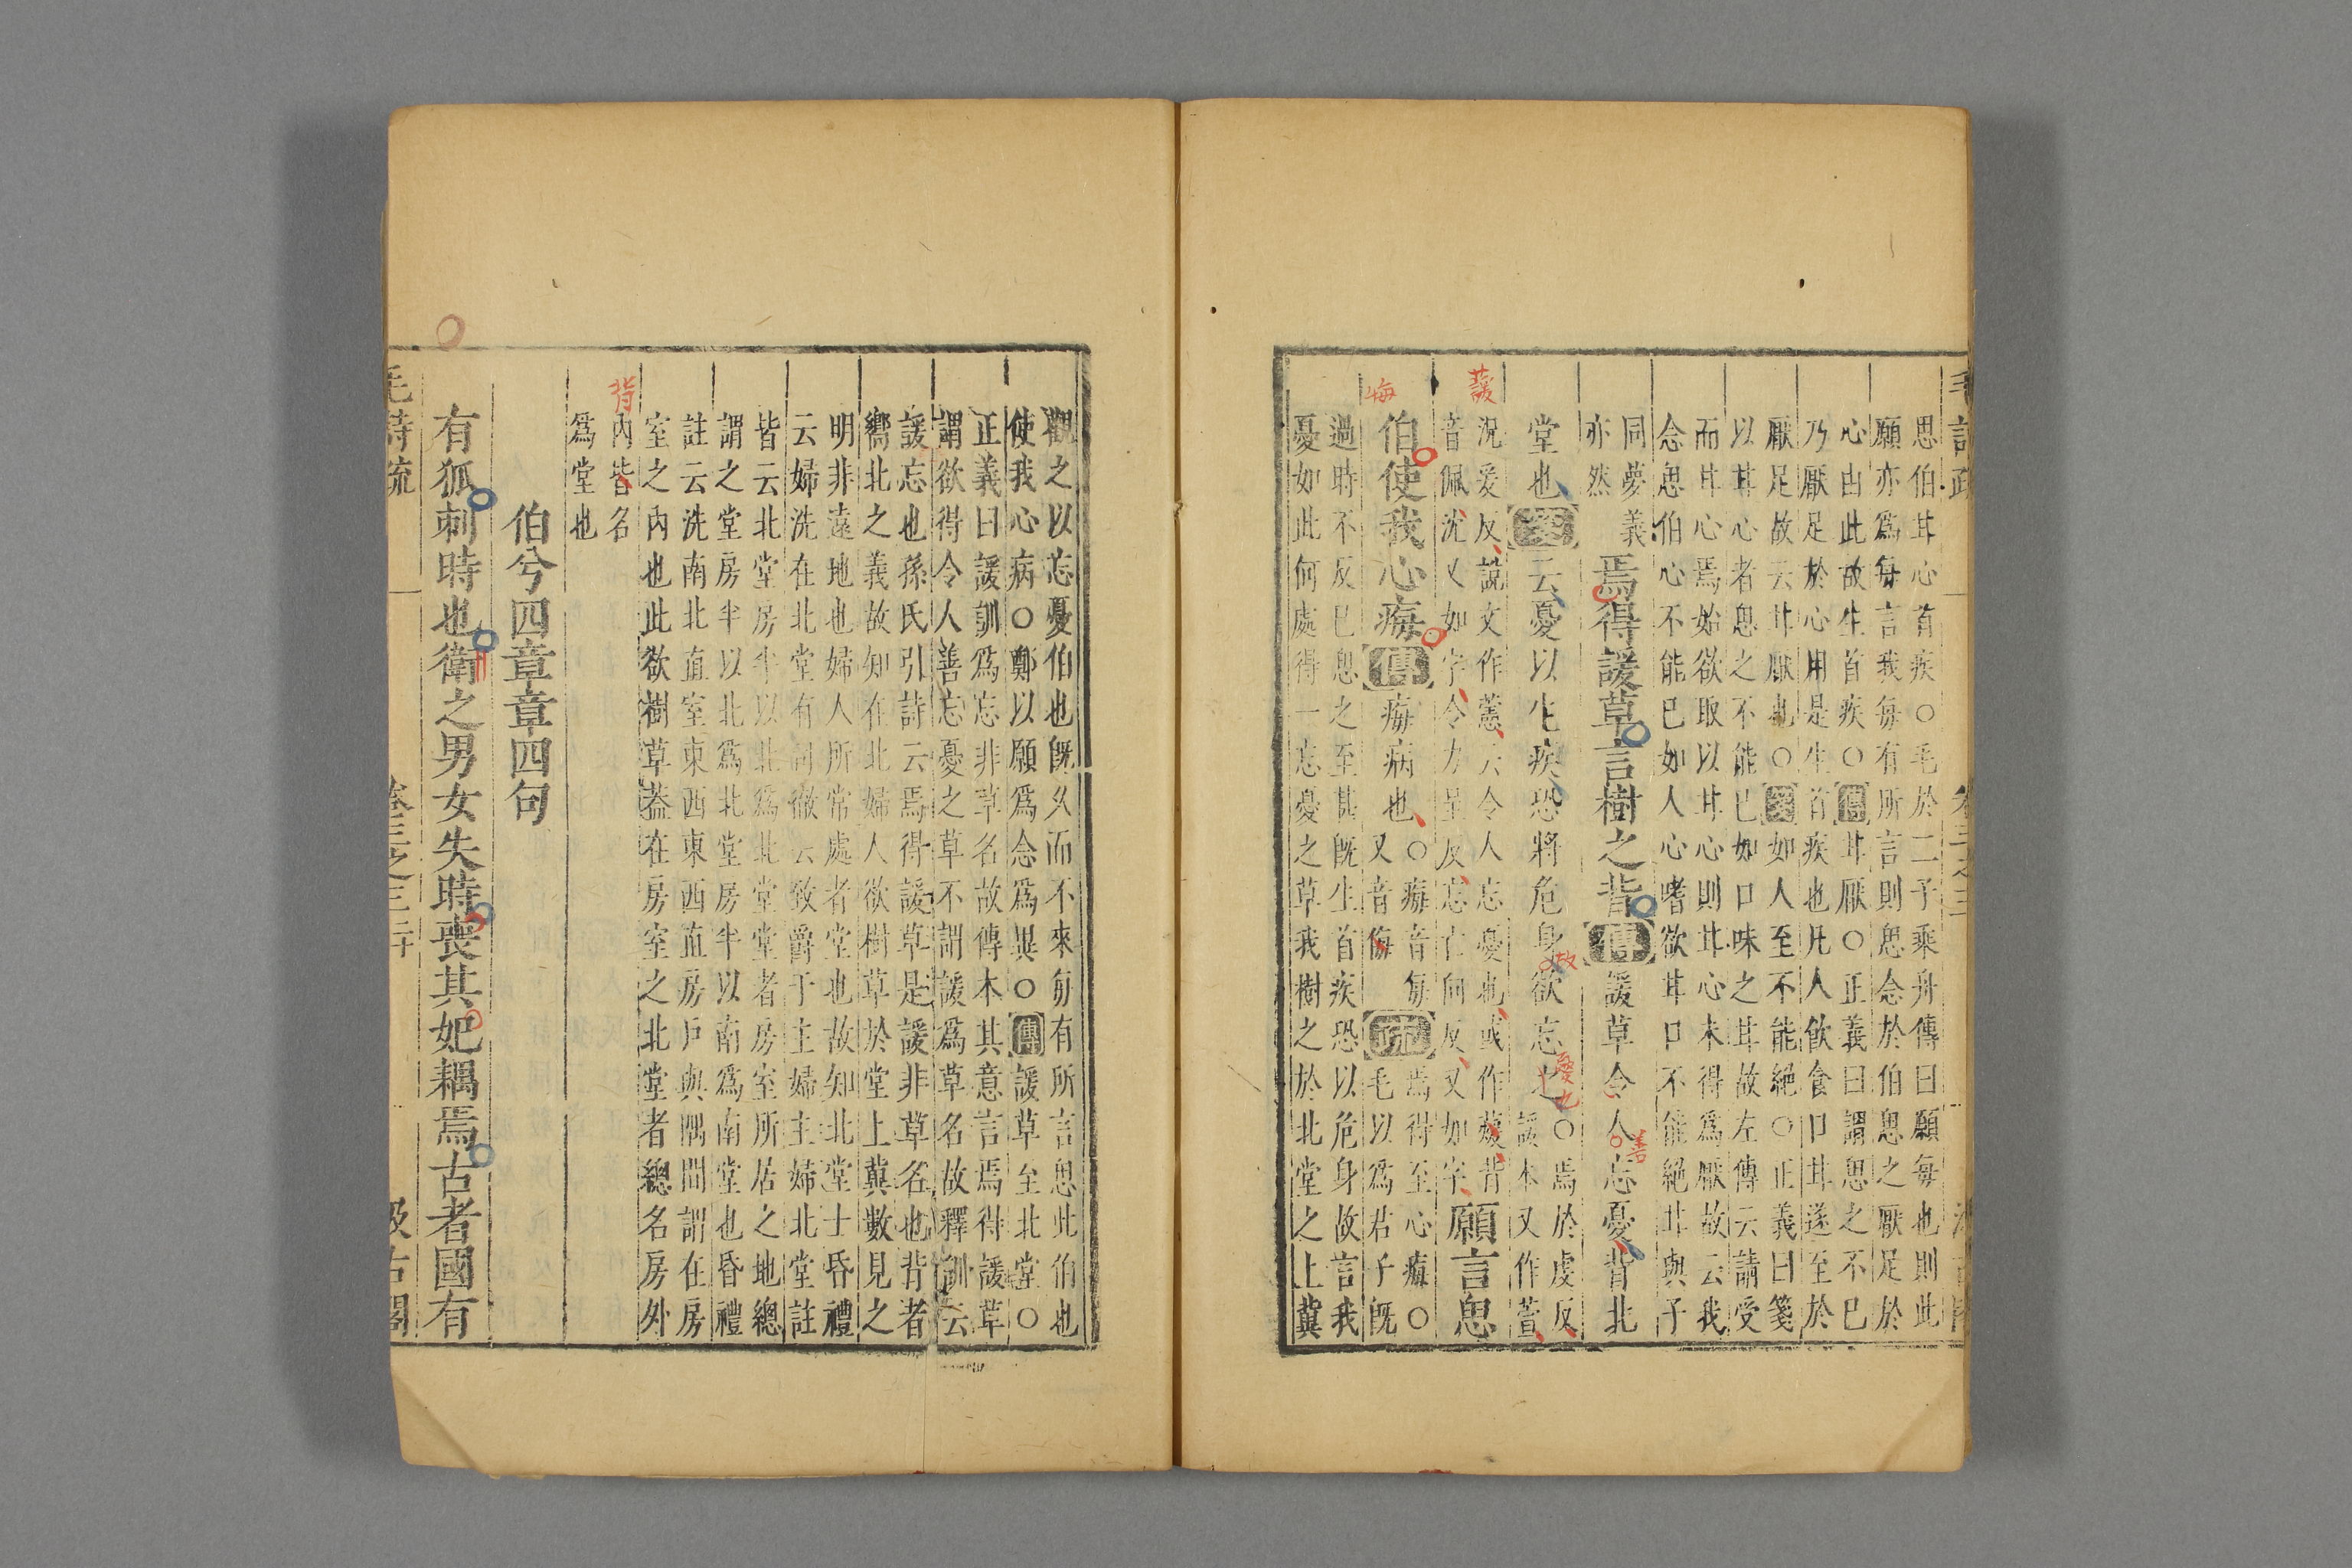 思伯甘心首疾○毛於二子乘舟傳曰願每也則此
願亦爲每言我每有所言則思念於伯思之厭足於
心由此故生首疾○傳甘厭○正義曰謂思之不已
乃厭足於心用是生首疾也凡人飲食口甘遂至於
厭足故云甘厭也○箋如人至不能絕○正義曰箋
以甘心者思之不能已如口味之甘故左傳云請受
而甘心焉始欲取以甘心則甘心未得爲厭故云我
念思伯心不能已如人心嗜欲甘口不能絕甘與子
同夢義
亦然
焉得諼草言樹之背傳諼草令人忘憂背北
善
堂也箋云憂以生疾恐將危身欲忘之○
故
憂也
焉於虔反
諼本又作萱
況爰反說文作藼云令人忘憂也或作蘐背
音佩沈又如字令力呈反忘亡向反又如字
願言思
諼
伯使我心痗傳痗病也○
痗音每
又音侮
悔
疏
焉得至心痗○
毛以爲君子既
過時不反已思之至甚既生首疾恐以危身故言我
憂如此何處得一忘憂之草我樹之於北堂之上冀
觀之以忘憂伯也既久而不來每有所言思此伯也
使我心病○鄭以願爲念爲異○傳諼草至北堂○
正義曰諼訓爲忘非草名故傳本其意言焉得諼草
謂欲得令人善忘憂之草不謂諼爲草名故釋訓云
諼忘也孫氏引詩云焉得諼草是諼非草名也背者
嚮北之義故知在北婦人欲樹草於堂上冀數見之
明非遠地也婦人所常處者堂也故知北堂士昏禮
云婦洗在北堂有司徹云致爵于主婦主婦北堂註
皆云北堂房半以北爲北堂堂者房室所居之地總
謂之堂房半以北爲北堂房半以南爲南堂也昏禮
註云洗南北直室東西東西直房戶與隅間謂在房
室之內也此欲樹草葢在房室之北堂者總名房外
內皆名
爲堂也
背
伯兮四章章四句
有狐刺時也衛之男女失時喪其妃耦焉古者國有
毛詩疏
卷三之三
汲古閣